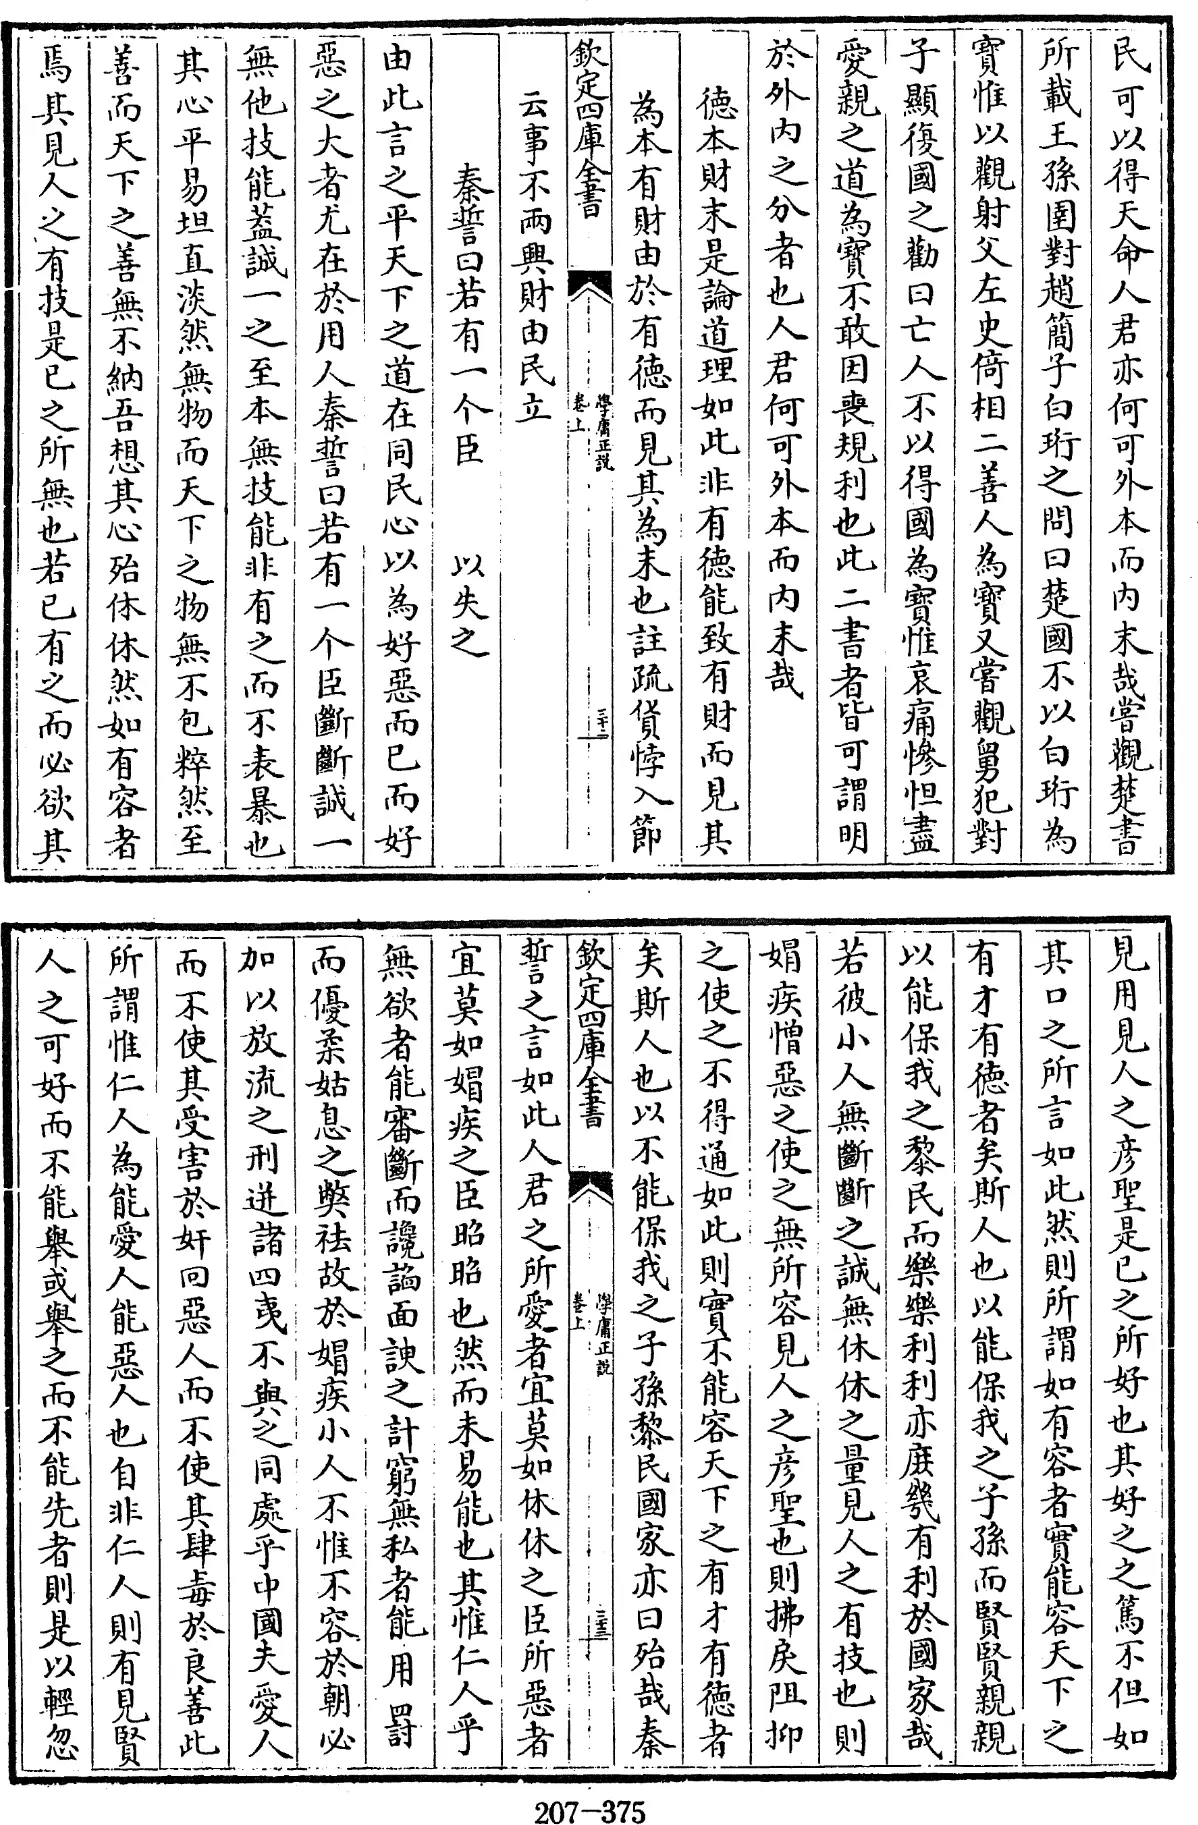 民可以得天命人君亦何可外本而内末哉嘗觀楚書
所載王孫圉對趙簡子白珩之問曰楚國不以白珩為
寶惟以觀射父左史倚相二善人為寶又嘗觀舅犯對
子顯復國之勸曰亡人不以得國為寶惟哀痛慘怛盡
愛親之道為寶不敢因喪規利也此二書者皆可謂明
於外内之分者也人君何可外本而内末哉
德本財末是論道理如此非有德能致有財而見其
為本有財由於有德而見其為末也註疏貨悖入節
欽定四庫全書
學庸正說
卷上
三十二
云事不兩興財由民立
秦誓曰若有一个臣 以失之
由此言之平天下之道在同民心以為好惡而已而好
惡之大者尤在於用人秦誓曰若有一个臣斷斷誠一
無他技能葢誠一之至本無技能非有之而不表暴也
其心平易坦直淡然無物而天下之物無不包粹然至
善而天下之善無不納吾想其心殆休休然如有容者
焉其見人之有技是已之所無也若已有之而必欲其
見用見人之彥聖是已之所好也其好之之篤不但如
其口之所言如此然則所謂如有容者實能容天下之
有才有德者矣斯人也以能保我之子孫而賢賢親親
以能保我之黎民而樂樂利利亦庶幾有利於國家哉
若彼小人無斷斷之誠無休休之量見人之有技也則
媢疾憎惡之使之無所容見人之彥聖也則拂戾阻抑
之使之不得通如此則實不能容天下之有才有德者
矣斯人也以不能保我之子孫黎民國家亦曰殆哉秦
欽定四庫全書
學庸正說
卷上
三十三
誓之言如此人君之所愛者宜莫如休休之臣所惡者
宜莫如媢疾之臣昭昭也然而未易能也其惟仁人乎
無欲者能審斷而讒謟面諛之計窮無私者能用罰
而優柔姑息之獘袪故於媢疾小人不惟不容於朝必
加以放流之刑迸諸四夷不與之同處乎中國夫愛人
而不使其受害於奸回惡人而不使其肆毒於良善此
所謂惟仁人為能愛人能惡人也自非仁人則有見賢
人之可好而不能舉或舉之而不能先者則是以輕忽
207-375